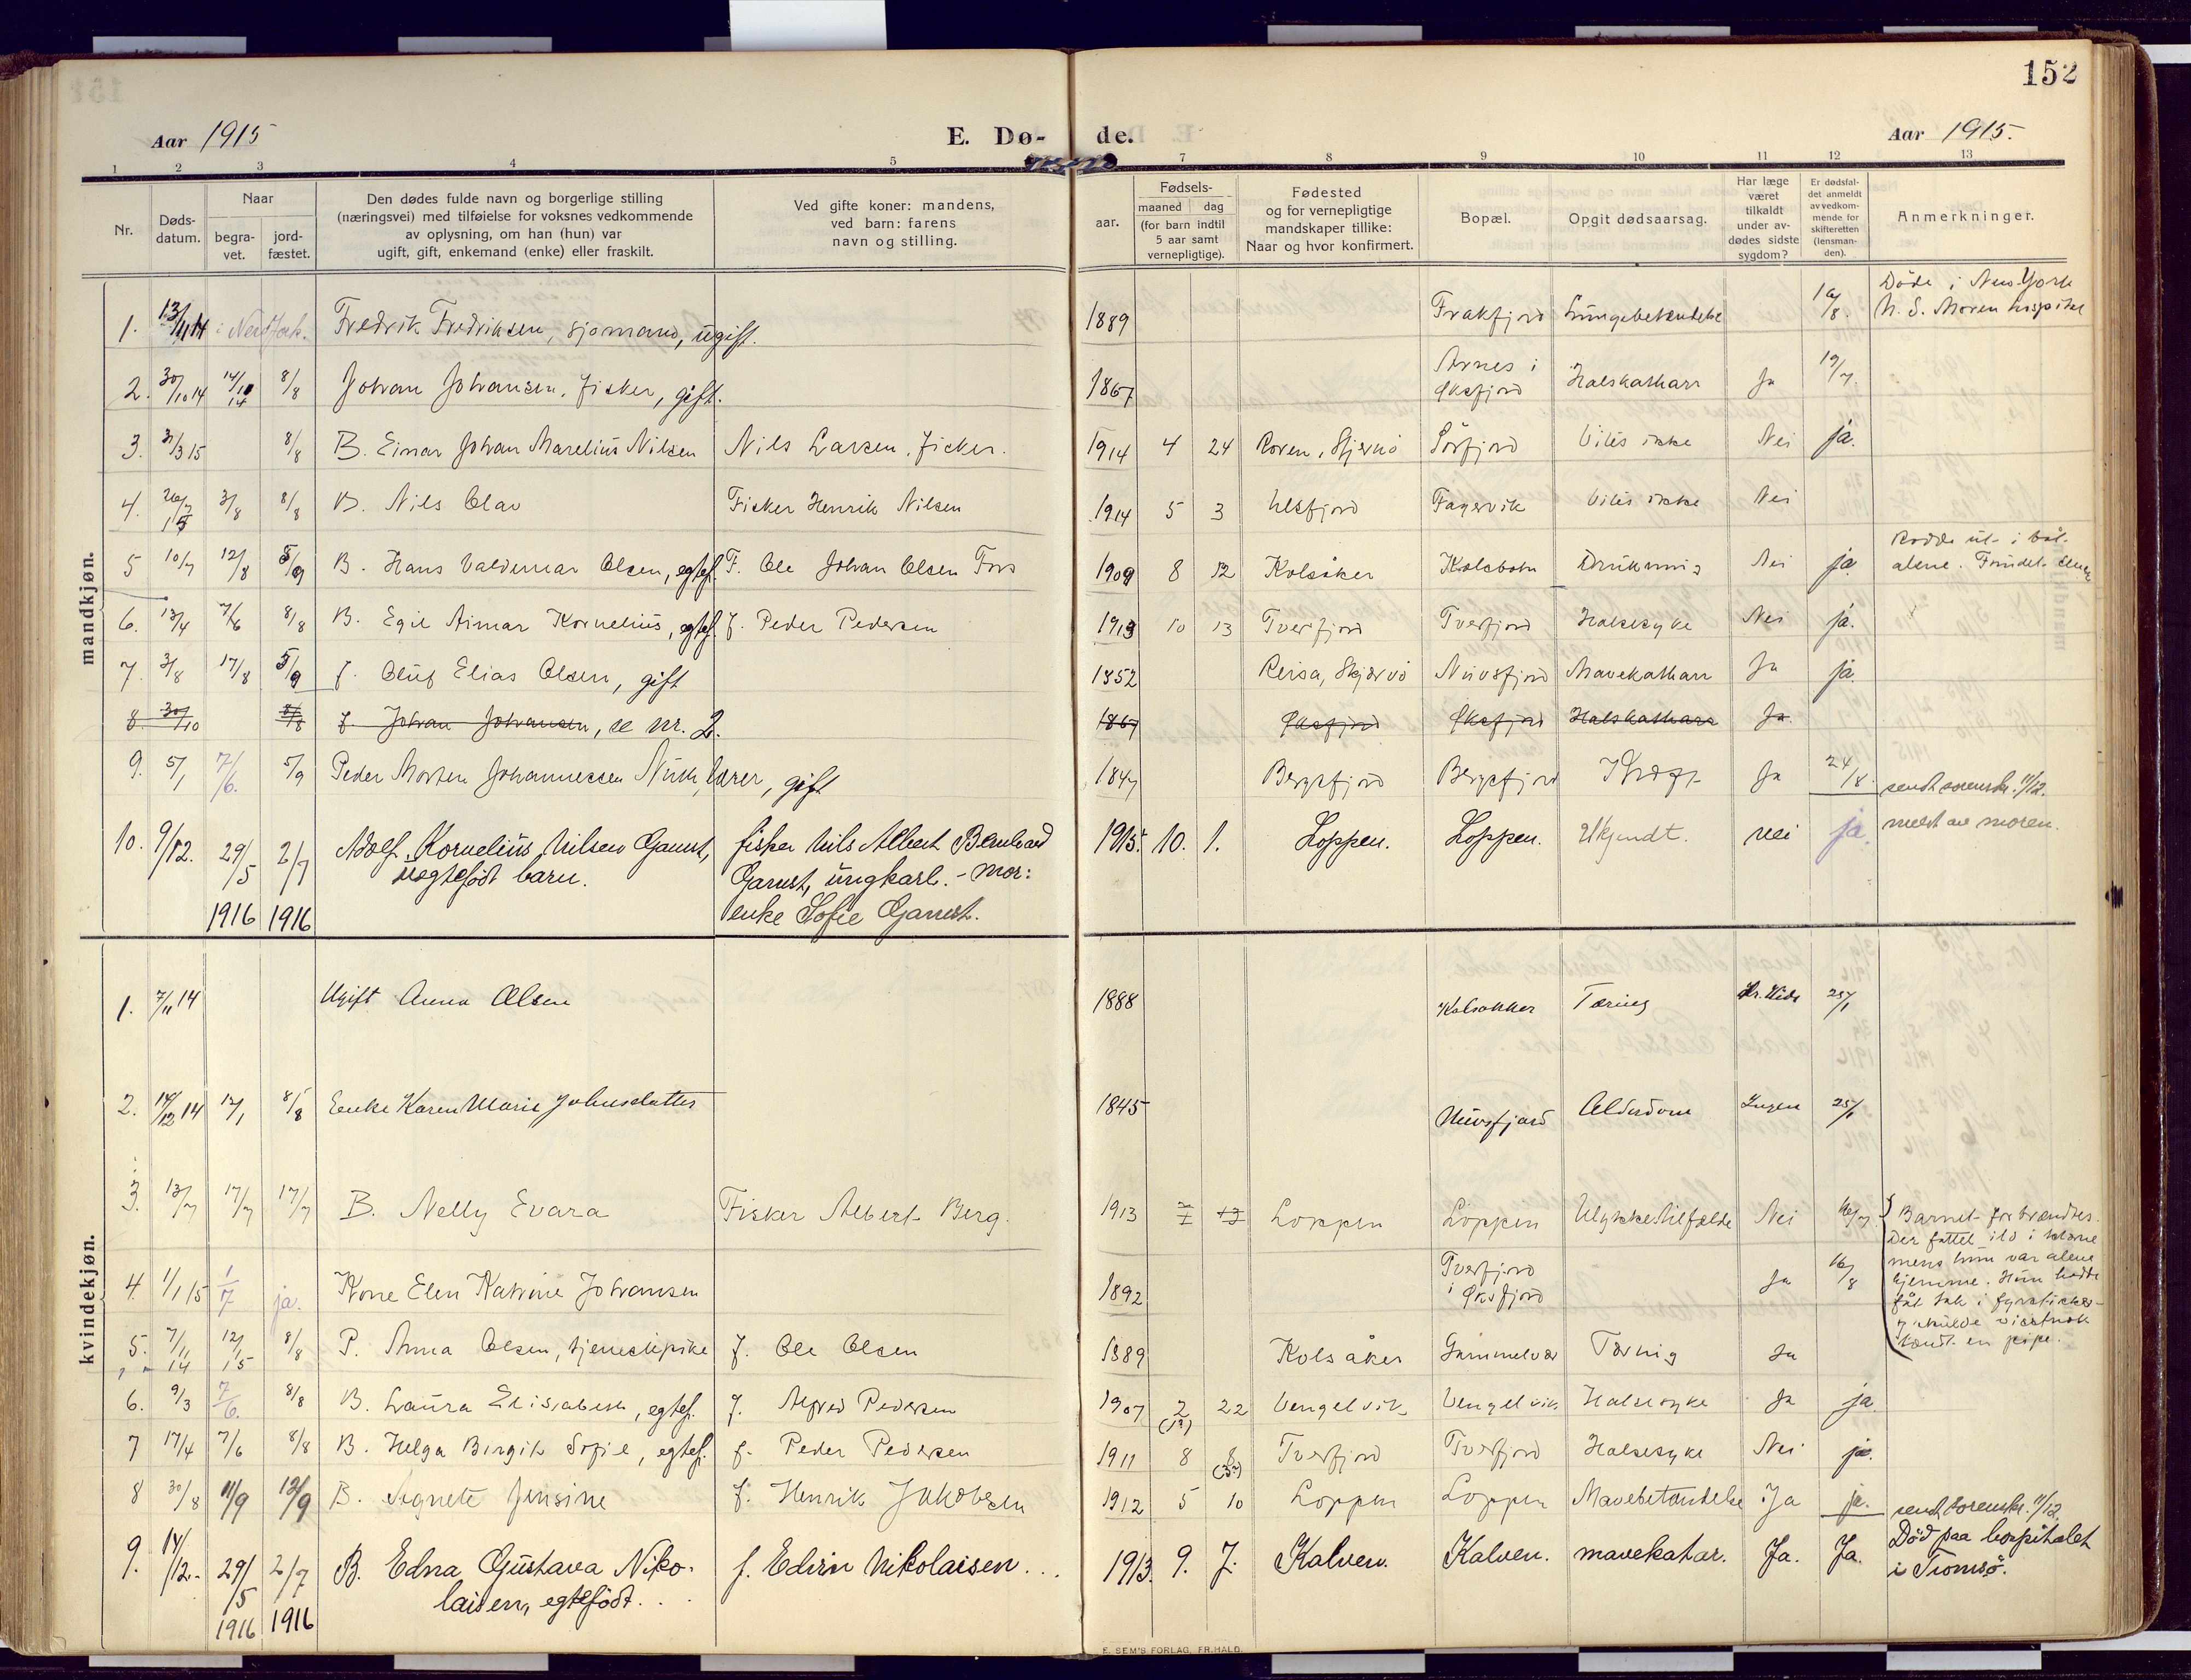 152
Aar 1915
E. Dø-
de.
Aar 1915.
1 2 3 4 5 7 8 9 10 11 12 13
Nr.
Døds-
datum.
Naar
begra-
vet.
jord-
fæstet.
Den dødes fulde navn og borgerlige stilling
(næringsvei) med tilføielse for voksnes vedkommende
av oplysning, om han (hun) var
ugift, gift, enkemand (enke) eller fraskilt.
Ved gifte koner: mandens,
ved barn: farens
navn og stilling.
aar.
Fødsels-
maaned dag
(for barn indtil
5 aar samt
vernepligtige).
Fødested
og for vernepligtige
mandskaper tillike:
Naar og hvor konfirmert.
Bopæl.
Opgit dødsaarsag.
Har læge
været
tilkaldt
under av-
dødes sidste
sygdom?
Er dødsfal-
det anmeldt
av vedkom-
mende for
skifteretten
(lensman-
den).
Anmerkninger.
mandkjøn.
1. 13/11 14 Fredrik Fredriksen, sjømand, ugift. 1889 Frakfjord Lungebetendelse 16/8. Døde i New York
2. 30/10 14 14/10 14 8/8 Johan Johansen, fisker, gift. 1867 Arnes i
Øksfjord Halskatharr Ja 19/7.
3. 31/3 15 8/8 B. Einar Johan Marelius Nilsen Nils Larsen, fisker. 1914 4 24 Sørfjord Vites ikke Nei ja.
4. 26/7 15 3/8 8/8 B. Nils Olav Fisker Henrik Nilsen 1914 5 3 Ulsfjord Fagervik Vites ikke Nei
5 10/7 12/8 5/9 B. Hans Valdemar Olsen, egtef. F. Ole Johan Olsen Fors 1909 8 12 Kolsåker Drukning Nei ja Rodde ut i båt
alene. Fundet
6. 13/4 7/6 8/8 B. Egil Aimar Kornelius, egtef. f. Peder Pedersen 1913 10 13 Tverfjord Tverfjord Halsesyke Nei ja.
7. 3/8 17/8 5/9 f. Oluf Elias Olsen, gift 1852 Reisa, Skjærvø Nuvsfjord Mavekatharr Ja ja
8. 30/10 8/8 f. Johan Johansen, se nr. 2. 1867 Øksfjord Øksfjord Halskatharr Ja
9. 5/1 7/6. 5/9 Peder Morten Johannessen Nuk, lærer, gift 1847 Bergsfjord Bergsfjord Kræft Ja 24/8. sendt sorenskr. 11/12.
10. 9/12. 29/5 2/7 Adolf Kornelius Nilsen Garust, fisker Nils Albert Bernhard 1915. 10. 1. Loppen. Loppen. Ukjendt. nei ja. meldt av moren.
uegtefødt barn. Garust, ungkarl. - mor:
1916 1916 enke Sofie Garust.
kvindekjøn.
1. 7/11 14 Ugift Anna Olsen 1888 Kolsakker Tæring 25/1
2. 14/12 14 12/1 8/8 Enke Karen Marie Johnsdatter 1845 Nuvsfjord Alderdom Ingen 25/1
3. 13/7 17/7 17/7 B. Nelly Evara Fisker Albert Berg. 1913 Loppen Loppen Ulykkestilfælde Nei 16/7 Barnet forbrændtes.
Der fattet ild i klærne
mens hun var alene
hjemme. Hun hadde
fåt tak i fyrstikker
skulde visstnok
tændt en pipe.
4. 1/1 15 1/7 ja. Kone Elen Katrine Johansen 1892 Tverfjord
i Øksfjord Ja 16/8
5. 7/11 14 12/1 15 8/8 P. Anna Olsen, tjenestepike f. Ole Olsen 1889 Kolsåker Gammelvær Tæring Ja
6. 9/3 7/6. 8/8 B. Laura Elisabeth, egtef. f. Alfred Pedersen 1907 2 22 Vengelvik Vengelvik Halsesyke Ja ja.
7 17/4 7/6 8/8 B. Helga Birgit Sofie, egtef. f. Peder Pedersen 1911 8 8 Tverfjord Tverfjord Halsesyke Nei ja.
8 30/8 11/9 12/9 B. Signete Jensine f. Henrik Jakobsen 1912 5 10 Loppen Loppen Mavebetændelse Ja ja. sendt sorenskr. 11/12.
9. 14/12. 29/5 2/7 B. Edna Gustava Niko- f. Edvin Nikolaisen . . . 1913. 9. 7. Kalven. Kalven. mavekatar. Ja. Ja. Død paa hospitalet
laisen, egtefødt. . . i Tromsø.
1916 1916
E. SEM'S FORLAG, FR.HALD.